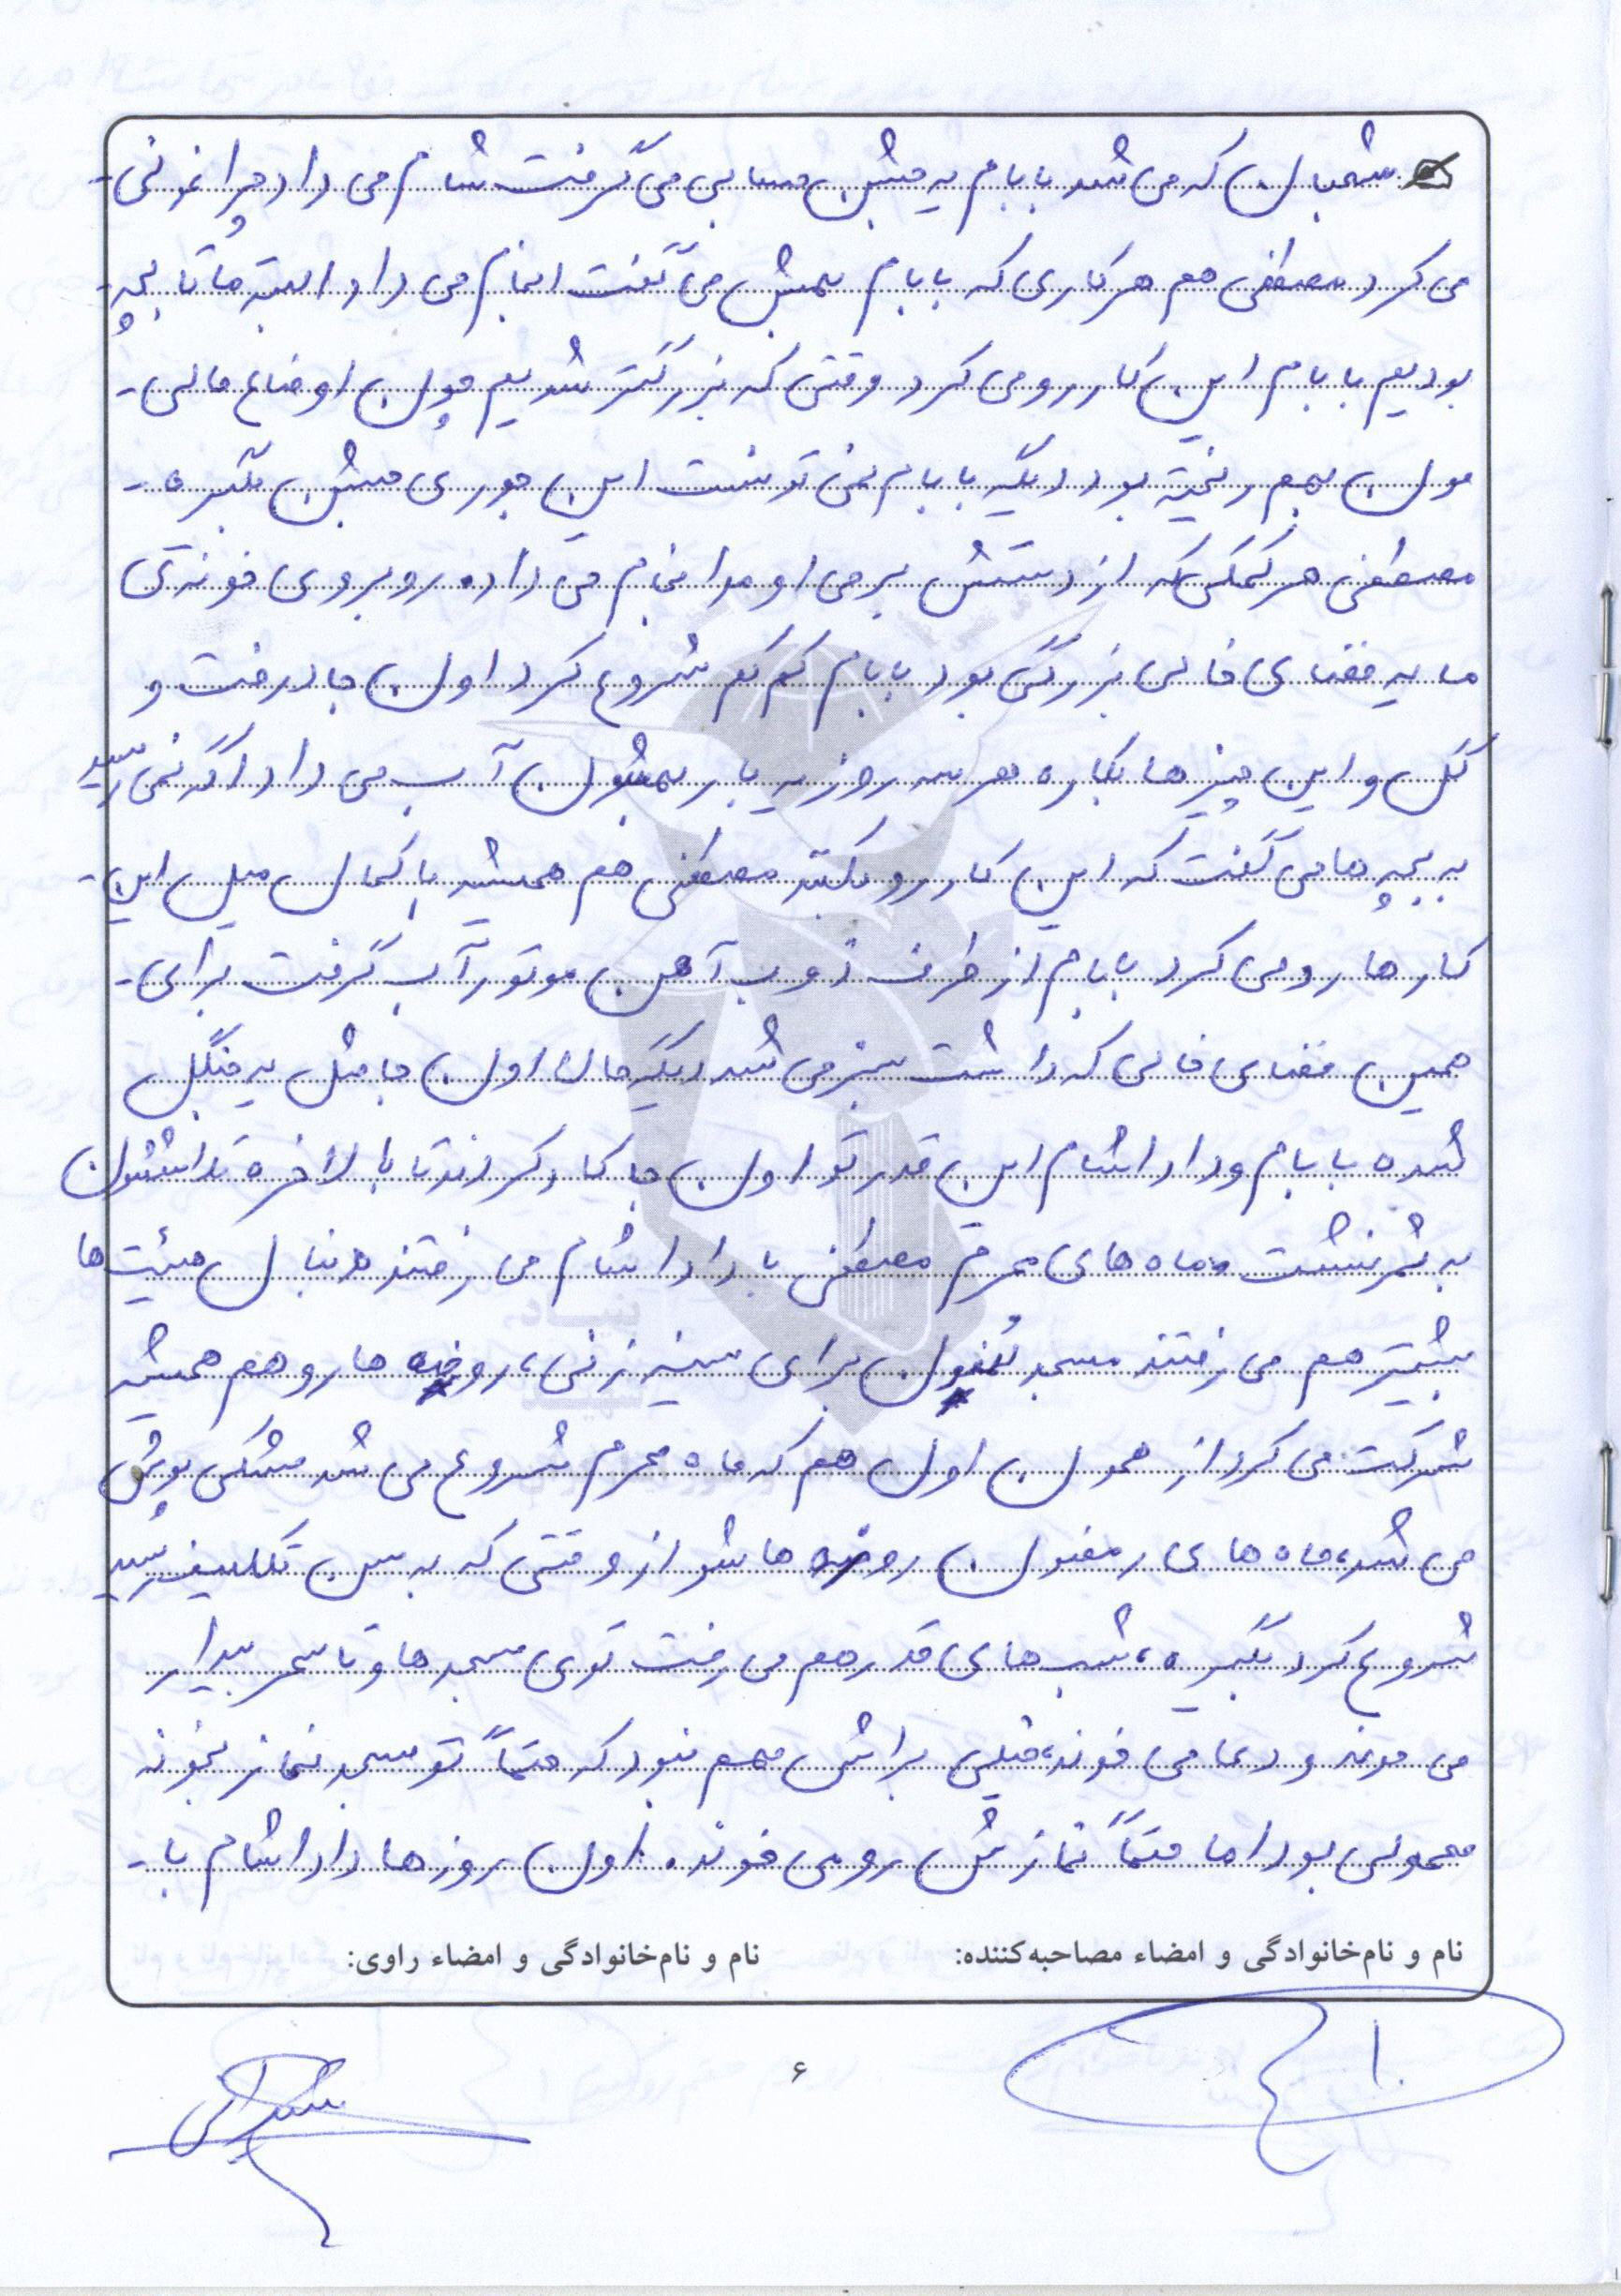 شعبان که می شد بابام یه جشن حسابی می گرفت شام می داد چراغونی-
می کرد مصطفی هم هر کاری که بابام بهش می گفت انجام می داد البته ما تا بچه-
بودیم بابام این کار رو می کرد وقتی که بزرگتر شدیم چون اوضاع مالی-
مون بهم ریخته بود دیگه بابام نمی تونست این جوری جشن بگیره-
مصطفی هر کمکی که از دستش بر می اومد انجام می داد. روبروی خونه ی
ما یه فضای خالی بزرگی بود بابام کم کم شروع کرد اون جا درخت و
گل و این چیزها بکاره هر سه روز یه بار بهشون آب می داد اگه نمی رسید
به بچه ها می گفت که این کار رو بکنند مصطفی هم همیشه با کمال میل این-
کارها رو می کرد بابام از طرف ذوب آهن موتور آب گرفت برای-
همین فضای خالی که داشت سبز می شد دیگه حالا اون جا مثل یه جنگل
شده بابام و داداشام این قدر تو اون جا کار کردند تا بالاخره تلاششون
به ثمر نشست. ماه های محرم مصطفی با داداشام می رفتند دنبال هیئت ها
بیشتر هم می رفتند مسجد برای سینه زنی، روضه ها رو هم همیشه
شرکت می کرد از همون اول هم که ماه محرم شروع می شد مشکی پوش
می شد، ماه های رمضون روزه هاشو از وقتی که به سن تکلیف رسید
شروع کرد بگیره، شب های قدر هم می رفت توی مسجدها و تا سحر بیدار
می موند و دعا می خوند، خیلی براش مهم نبود که حتماً تو مسجد نماز بخونه
معمولی بود اما حتماً نمازش رو می خوند. اون روزها داداشام با-
نام و نام‌خانوادگی و امضاء مصاحبه‌کننده: نام و نام‌خانوادگی و امضاء راوی:
۶